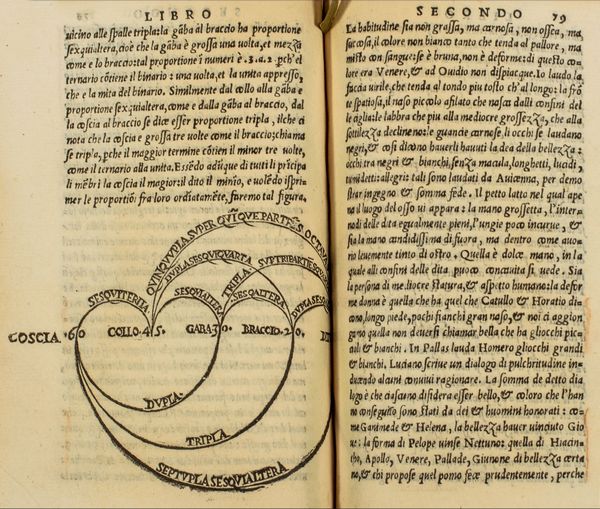 LIBRO
uicino alle spalle tripla: la gãba al braccio ha proportione
sexquialtera, cioè che la gãba è grossa una uolta, et mezza
come e lo braccio: tal proportione i numeri è .3. a .2. pch'el
ternario cõtiene il binario: una uolta, et la unita appresso,
che e la mita del binario. Similmente dal collo alla gãba e
proportione sexquialtera, come e dalla gãba al braccio, dal
la coscia al braccio se dice esser proportione tripla, ilche ci
nota che la coscia e grossa tre uolte come il braccio: chiama
se tripla, pche il maggior termine cõtien il minor tre uolte,
come il ternario alla unita. Essẽdo adũque di tutti li prĩcipa
li mẽbri la coscia il magior: il dito il minio, e uolẽdo isprĩ
mer le proportiõi fra loro ordĩatamẽte, faremo tal figura,
QVINQVVPLA SVPER QVĨQVE PARTẼS OCTAVAS
DVPLA SESQVIQVARTA
SVPTRIBARTẼS
SESQVITERTIA
SESQVIALTERA
TRIPLA
SESQALTERA
DVPLA SESQ
COSCIA. 60 COLLO. 45. GABA 30. BRACCIO. 20. DI
DVPLA
TRIPLA
SEPTVPLA SESQVIALTERA
SECONDO 79
La habitudine sia non grassa, ma carnosa, non ossea, ma
sucosa, il colore non bianco tanto che tenda al pallore, ma
misto con sangue: se è bruna, non è deforme: di questo co-
lore era Venere, & ad Ouidio non dispiacque. Io laudo la
faccia uirile, che tenda al tondo piu tosto ch'al longo: la frõ
te spatiosa, il naso piccolo afilato che nasca dalli confini del
le ciglia: le labbra che piu alla mediocre grossezza, che alla
sottilezza declineno: le guancie carnose, li occhi se laudano
negri, & cosi dicono hauerli hauuti la dea della bellezza:
occhi tra negri & bianchi, senza macula, longhetti, lucidi,
humidetti: allegri: tali sono laudati da Auicenna, per demo
strar ingegno & somma fede. Il petto latto nel qual ape
na il luogo del osso ui appara: la mano grossetta, l'inter-
nodi delle dita egualmente pieni, l'ungie poco incurue, &
sia la mano candidissima di fuora, ma dentro come auo-
rio leuemente tinto di ostro. Quella è dolce mano, in la
quale alli confini delle dita poco concauita si uede. Sia
la persona di mediocre statura, & aspetto humano: la defor
me donna è quella che ha quel che Catullo & Horatio di
cono, longo piede, pochi fianchi gran naso, & noi ci aggion
gano quella non deuersi chiamar bella che ha gliocchi pic
coli & bianchi. In Pallas lauda Homero gliocchi grandi
& bianchi. Luciano scriue un dialogo di pulchritudine in-
ducendo alcuni conuiui ragionare. La somma de detto dia
logo è che ciascuno disidera esser bello, & coloro che l'han
no conseguito sono stati da dei & huomini honorati: co-
me Ganimede & Helena, la bellezza hauer uinciuto Gio
ue: la forma di Pelope uinse Nettuno: quella di Hiacin-
tho, Apollo, Venere, Pallade, Giunone di bellezza certa
no, & chi propose quel pomo fece prudentemente, perche